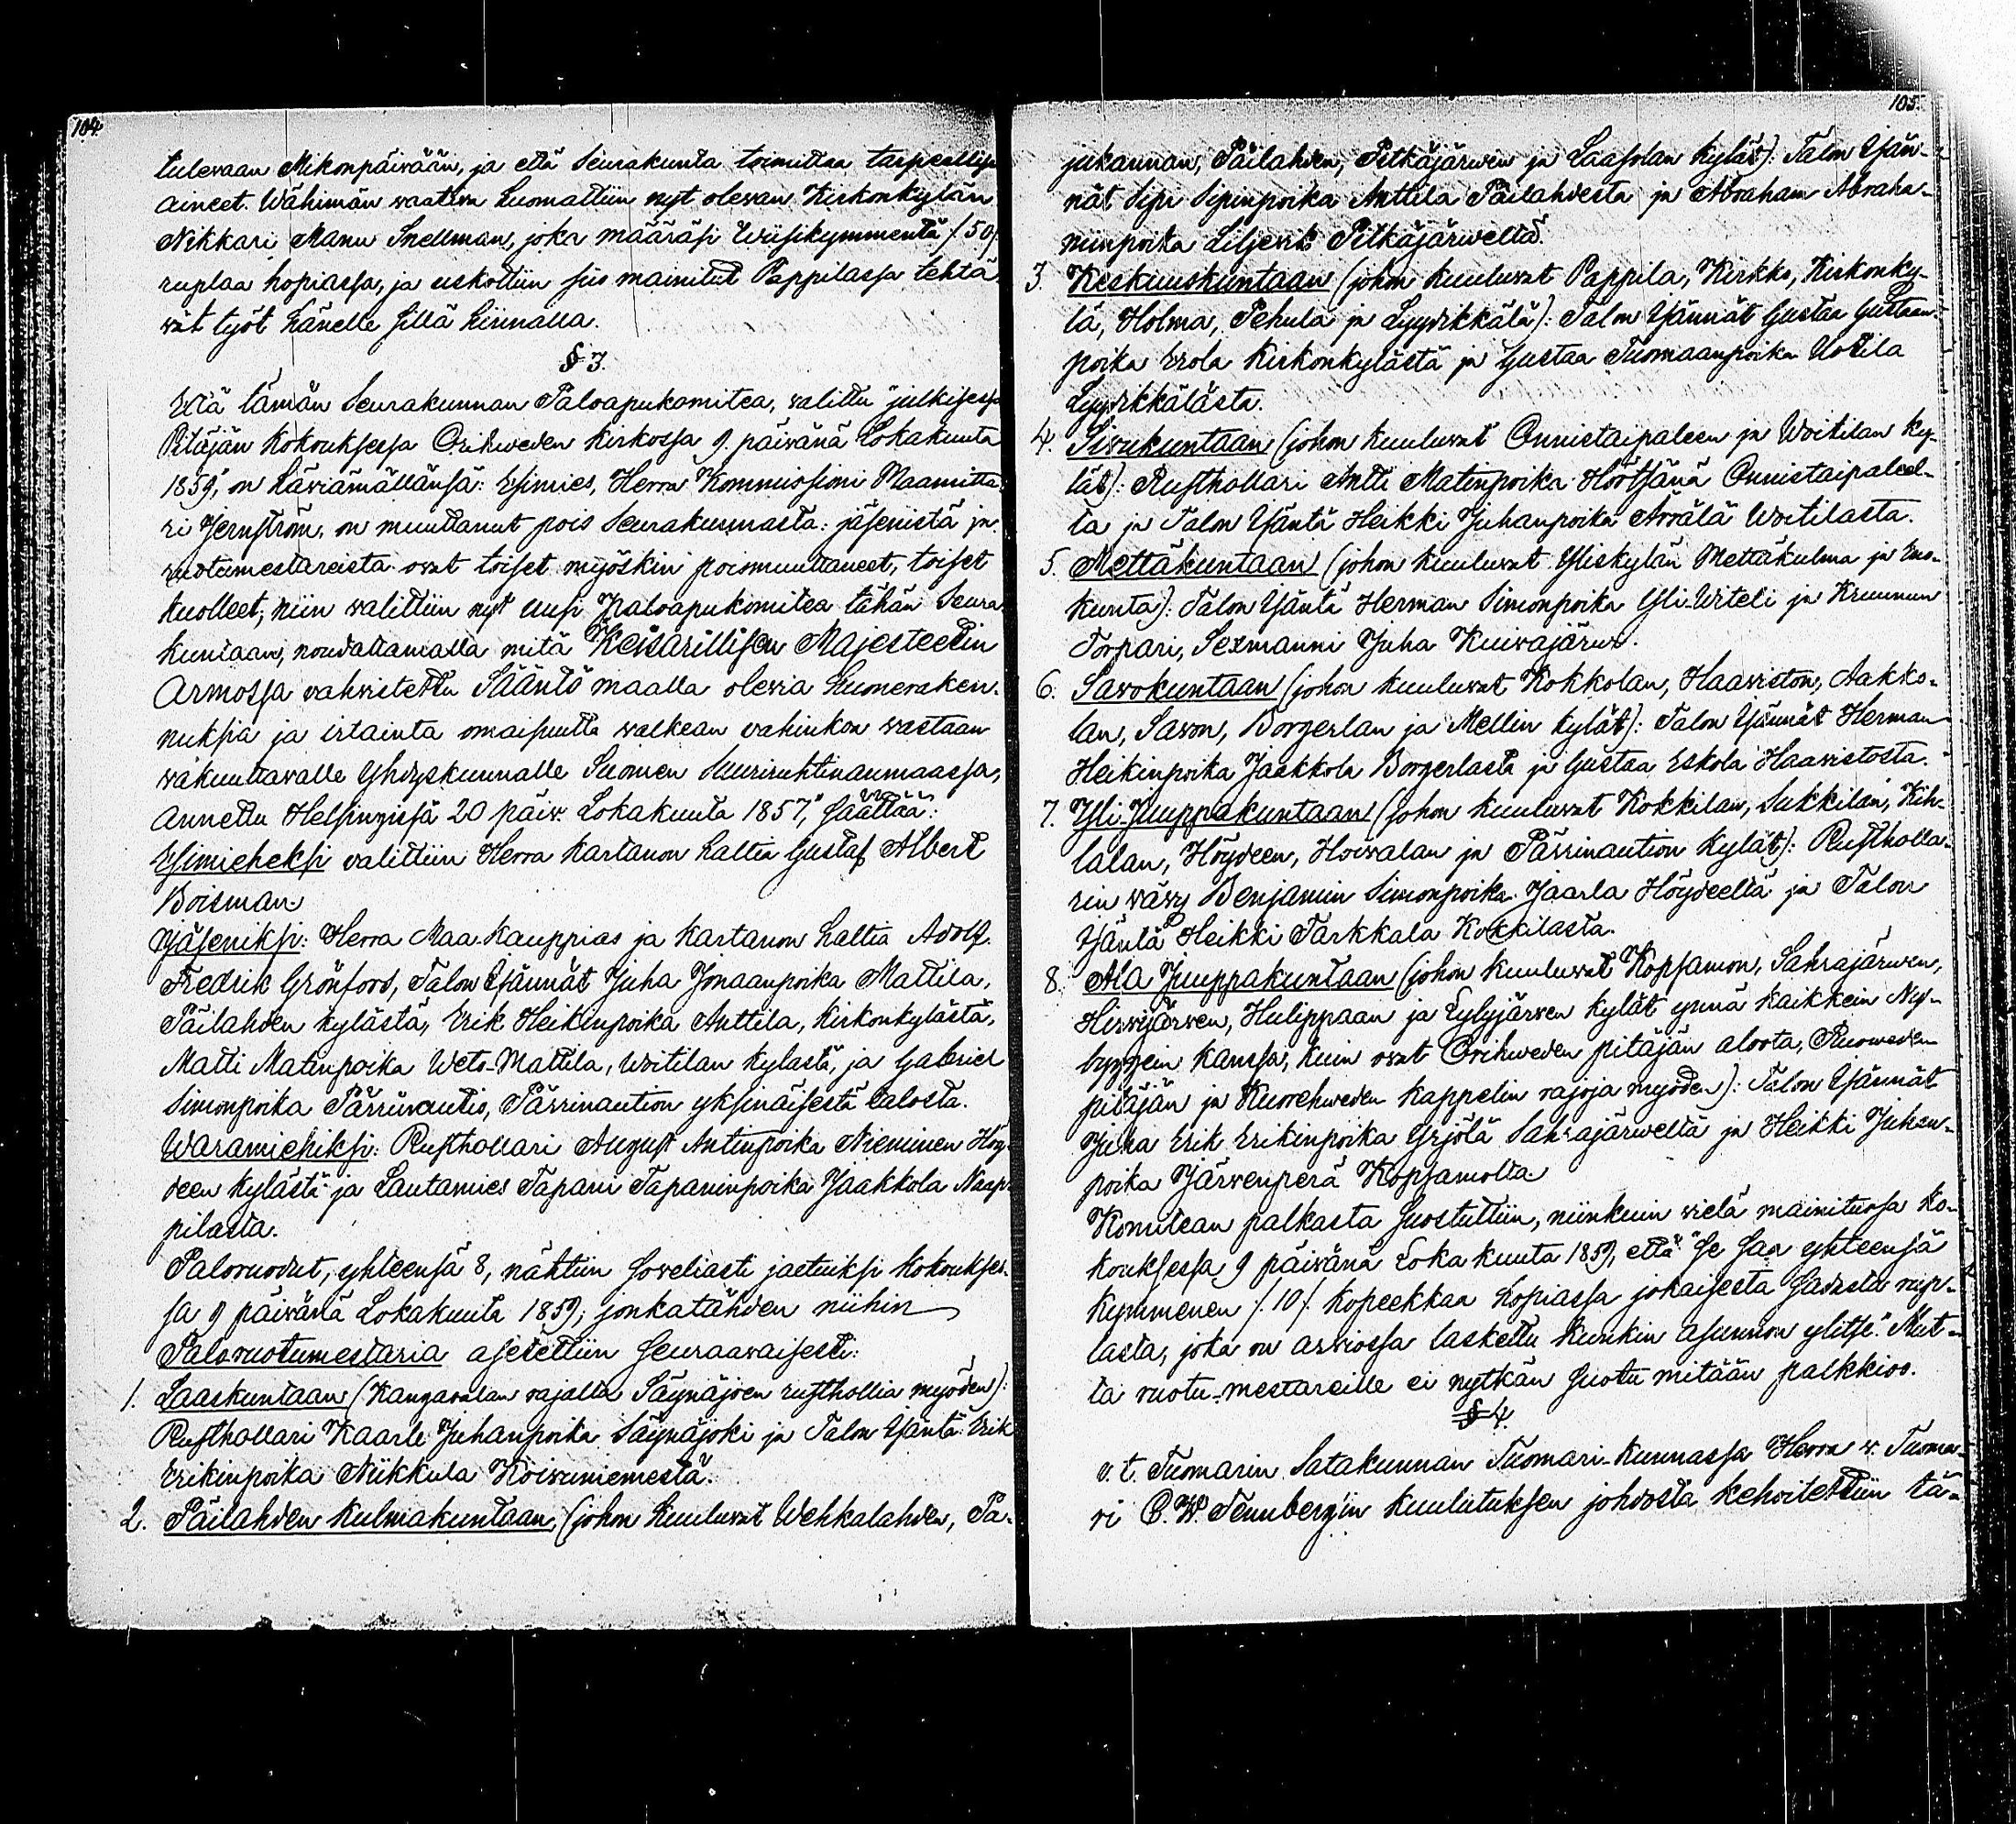 104.
tulevaan Mikonpäivään, ja että Seurakunta toimittaa tarpeellise
aineet. Wähimän vaativa Luomattiin nyt olevan Kirkonkylän
Nikkari Manu Snellman, joka määräsi Wiisikymmentä /.50/.
ruplaa hopiassa, ja uskottiin siis mainitut Pappilassa tehtä-
vät työt hänelle sillä hinnalla.
§ 3.
Että tämän Seurakunnan Paloapukomitea, valittu julkisessa
Pitäjän kokouksessa Oriveden kirkossa 9. päivänä Lokakuuta
1859, on häviämällänsä: Esimies, Herra Kommissioni Maamitta-
ri Jernström, on muuttanut pois Seurakunnasta: jäsenistä ja
ruotumestareista ovat toiset myöskin poismuuttaneet, toiset
kuolleet; niin valittiin nyt uusi paloapukomitea tähän Seura
kuntaan, noudattamalla mitä Keisarillisen Majesteetin
Armossa vahvistettu Sääntö maalla olevia huoneraken-
nuksia ja irtainta omaisuutta valkean vahinkon vastaan
vakuuttavalle Yhdyskunnalle Suomen Suuriruhtinanmaassa,
annettu Helsingissä 20 päiv. Lokakuuta 1857," säättää:
Esimieheksi valittiin Herra Kartanon haltia Gustaf Albert
Boisman.
Jäseniksi: Herra Maa-kauppias ja Kartanon haltia Adolf
Fredrik Grönfors, Talon Isännät Juha Jonaanpoika Mattila,
Päilahden kylästä, Erik Heikinpoika Anttila, Kirkonkylästä,
Matti Matinpoika Weto-Mattila, Woitilan kylästä, ja Gabriel
Simonpoika Pärrinautio, Pärrinaution yksinäisestä talosta.
Waramiehiksi: Rusthollari August Antinpoika Nieminen Höy-
deen kylästä ja Lautamies Tapani Tapaninpoika Jaakkola Naap-
pilasta.
Paloruodut, yhteensä 8, nähtiin soveliasti jaetuiksi kokoukses-
sa 9 päivänä Lokakuuta 1859; jonkatähden niihin
Paloruotumestaria asetettiin seuraavaisesti:
1. Laaskuntaan (Kangasalan rajalta Säynäjoen rusthollia myöden):
Rusthollari Kaarle Juhanpoika Säynäjoki ja Talon Isäntä Erik
Erikinpoika Niikkula Koivuniemestä.
2. Päilahden kulmakuntaan, (johon kuuluvat Wehkalahden, Pa-
105.
jukannan, Päilahden, Pitkäjärwen ja Laasolan kylät): Talon Isän-
nät Sipi Sipinpoika Anttila Päilahdesta ja Abraham Abraha-
minpoika Liljevik Pitkäjärweltä.
3. Keskuuskuntaan (johon kuuluvat Pappila, Kirkko, Kirkonky-
lä, Holma, Pehula ja Lyydikkälä): Talon Isännät Gustaa Gustaan-
poika Erola Kirkonkylästä ja Gustaa Tuomaanpoika Uotila
Lyydikkälästä.
4. Sivukuntaan (johon kuuluvat Onnistaipaleen ja Woitilan ky-
lät): Rusthollari Antti Matinpoika Höötsänä Onnistaipaleel-
ta ja Talon Isäntä Heikki Juhanpoika Ärrälä Woitilasta.
5. Mettäkuntaan (johon kuuluvat Yliskylän Mettäkulma ja Eno-
kunta): Talon Isäntä Herman Simonpoika Yli-Witeli ja Kruunun
Torpari, Sexmanni Juha Kuivajärwi.
6. Savokuntaan (johon kuuluvat Kokkolan, Haaviston, Aakko-
lan, Savon, Borgerlan ja Mellin kylät): Talon Isännät Herman
Heikinpoika Jaakkola Borgerlasta ja Gustaa Eskola Haavistosta.
7. Yli-Juuppakuntaan (johon kuuluvat Kokkilan, Sukkilan, Kih-
lalan, Höydeen, Hoivalan ja Pärrinaution kylät): Rustholla-
rin vävy Benjamin Simonpoika Jaarla Höydeeltä ja Talon
Isäntä Heikki Tarkkala Kokkilasta.
8. Ala Juuppakuntaan (johon kuuluvat Kopsamon, Sahrajärwen,
Hirvijärven, Hulippaan ja Lylyjärven kylät ynnä kaikkein Ny-
byggein kanssa, kuin ovat Orihweden pitäjän aloota, Ruoweden
pitäjän ja Kuorehweden kappelin rajoja myöden): Talon Isännät
Juha Erik Erikinpoika Yrjölä Sahrajärweltä ja Heikki Juhan-
poika Järvenperä Kopsamolta
Komitean palkasta suostuttiin, niinkuin vielä mainitussa ko-
kouksessa 9 päivänä Lokakuuta 1859, että "se saa yhteensä
kymmenen /.10/. kopeekkaa hopiassa jokaisesta sadasta rup-
lasta, joka on arviossa laskettu kunkin asunnon ylitse". Mut-
ta ruotu-mestareille ei nytkän suotu mitään palkkioo.
§ 4.
v. t. Tuomarin Satakunnan Tuomari-kunnassa Herra v. Tuoma-
ri C. W. Tennbergin kuulutuksen johdosta kehoitettiin tä-